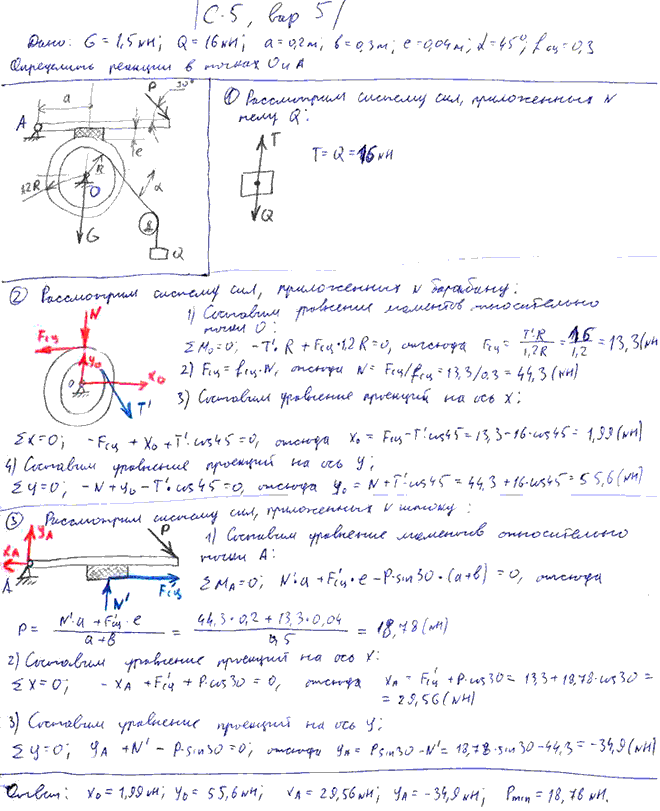 С.5, вар 5
Дано: G = 1,5 кН; Q = 16 кН; a = 0,2 м; b = 0,3 м; e = 0,04 м; α = 45°; fсц = 0,3
Определить реакции в точках O и A
a
P
30°
A
e
R
1,2R
O
α
B
G
Q
① Рассмотрим систему сил, приложенных к
телу Q:
T
T = Q = 16 кН
Q
② Рассмотрим систему сил, приложенных к барабану:
N
Fсц
y₀
O
x₀
T'
1) Составим уравнение моментов относительно
точки O:
ΣM₀=0; -T'·R + Fсц·1,2R = 0, отсюда Fсц = T'·R / 1,2R = 16 / 1,2 = 13,3 (кН)
2) Fсц = fсц·N, отсюда N = Fсц/fсц = 13,3/0,3 = 44,3 (кН)
3) Составим уравнение проекций на ось x:
Σx=0; -Fсц + x₀ + T'·cos45 = 0, отсюда x₀ = Fсц - T'·cos45 = 13,3 - 16·cos45 = 1,99 (кН)
4) Составим уравнение проекций на ось y;
Σy=0; -N + y₀ - T'·cos45 = 0, отсюда y₀ = N + T'·cos45 = 44,3 + 16·cos45 = 55,6 (кН)
③ Рассмотрим систему сил, приложенных к штоку:
yA
xA
A
P
N'
F'сц
1) Составим уравнение моментов относительно
точки A:
ΣMA=0; N'·a + F'сц·e - P·sin30·(a+b) = 0, отсюда
P = N'·a + F'сц·e / a+b = 44,3·0,2 + 13,3·0,04 / 0,5 = 18,78 (кН)
2) Составим уравнение проекций на ось x:
Σx=0; -xA + F'сц + P·cos30 = 0, отсюда xA = F'сц + P·cos30 = 13,3 + 18,78·cos30 =
= 29,56 (кН)
3) Составим уравнение проекций на ось y;
Σy=0; yA + N' - P·sin30 = 0; отсюда yA = P sin30 - N' = 18,78·sin30 - 44,3 = -34,9 (кН)
Ответ: x₀ = 1,99 кН; y₀ = 55,6 кН; xA = 29,56 кН; yA = -34,9 кН; Pmin = 18,78 кН.